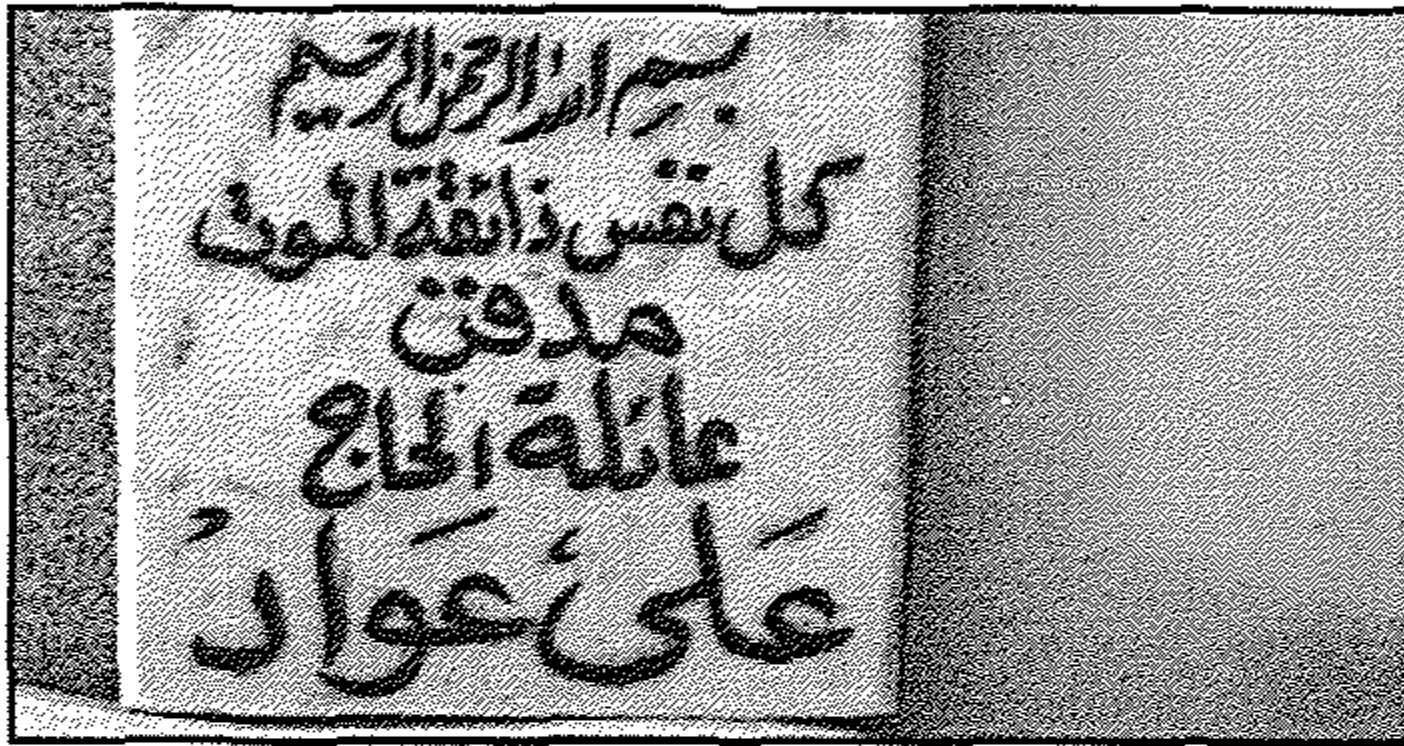 بسم الله الرحمن الرحيم
كل نفس ذائقة الموت
مدفن
عائلة الحاج
عَلى عَوَادُ